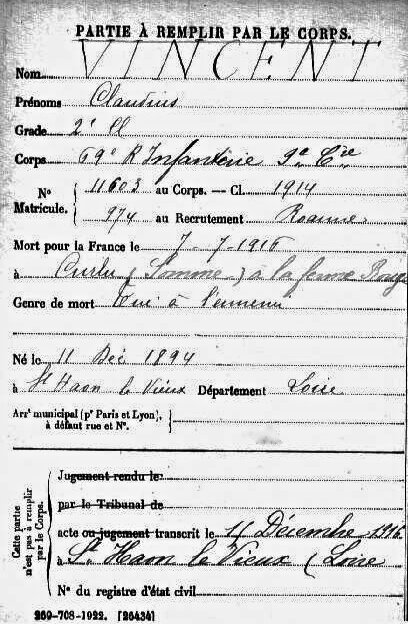 PARTIE À REMPLIR PAR LE CORPS.
Nom VINCENT
Prénoms Claudius
Grade 2e Cl
Corps 69e R Infanterie 9e Cie
N° Matricule. { 11603 au Corps. — Cl. 1914
974 au Recrutement Roanne
Mort pour la France le 7-7-1916
à Curlu (Somme) a la ferme
Genre de mort Tué à l'ennemi
Né le 11 Déc 1894
à St Haon le Vieux Département Loire
Arrt municipal (pr Paris et Lyon),
à défaut rue et N°.
Cette partie n'est pas à remplir par le Corps.
Jugement rendu le
par le Tribunal de
acte ou jugement transcrit le 15 Décembre 1916
à St Haon le Vieux (Loire
N° du registre d'état civil
269-708-1922. [26434]